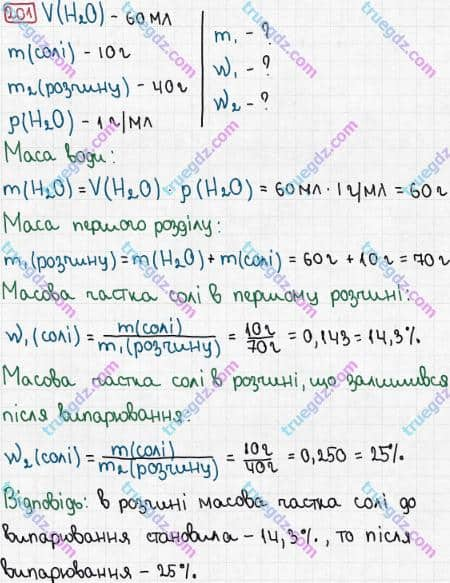 201 V(H₂O) - 60 мл
m(солі) - 10 г
m₂(розчину) - 40 г
ρ(H₂O) - 1 г/мл
m₁ - ?
W₁ - ?
W₂ - ?
Маса води:
m(H₂O) = V(H₂O) · ρ(H₂O) = 60 мл · 1 г/мл = 60 г
Маса першого розділу:
m₁(розчину) = m(H₂O) + m(солі) = 60 г + 10 г = 70 г
Масова частка солі в першому розчині:
W₁(солі) = m(солі) / m₁(розчину) = 10 г / 70 г = 0,143 = 14,3%.
Масова частка солі в розчині, що залишився
після випарювання:
W₂(солі) = m(солі) / m₂(розчину) = 10 г / 40 г = 0,250 = 25%.
Відповідь: в розчині масова частка солі до
випарювання становила - 14,3%., то після
випарювання - 25%.
truegdz.com